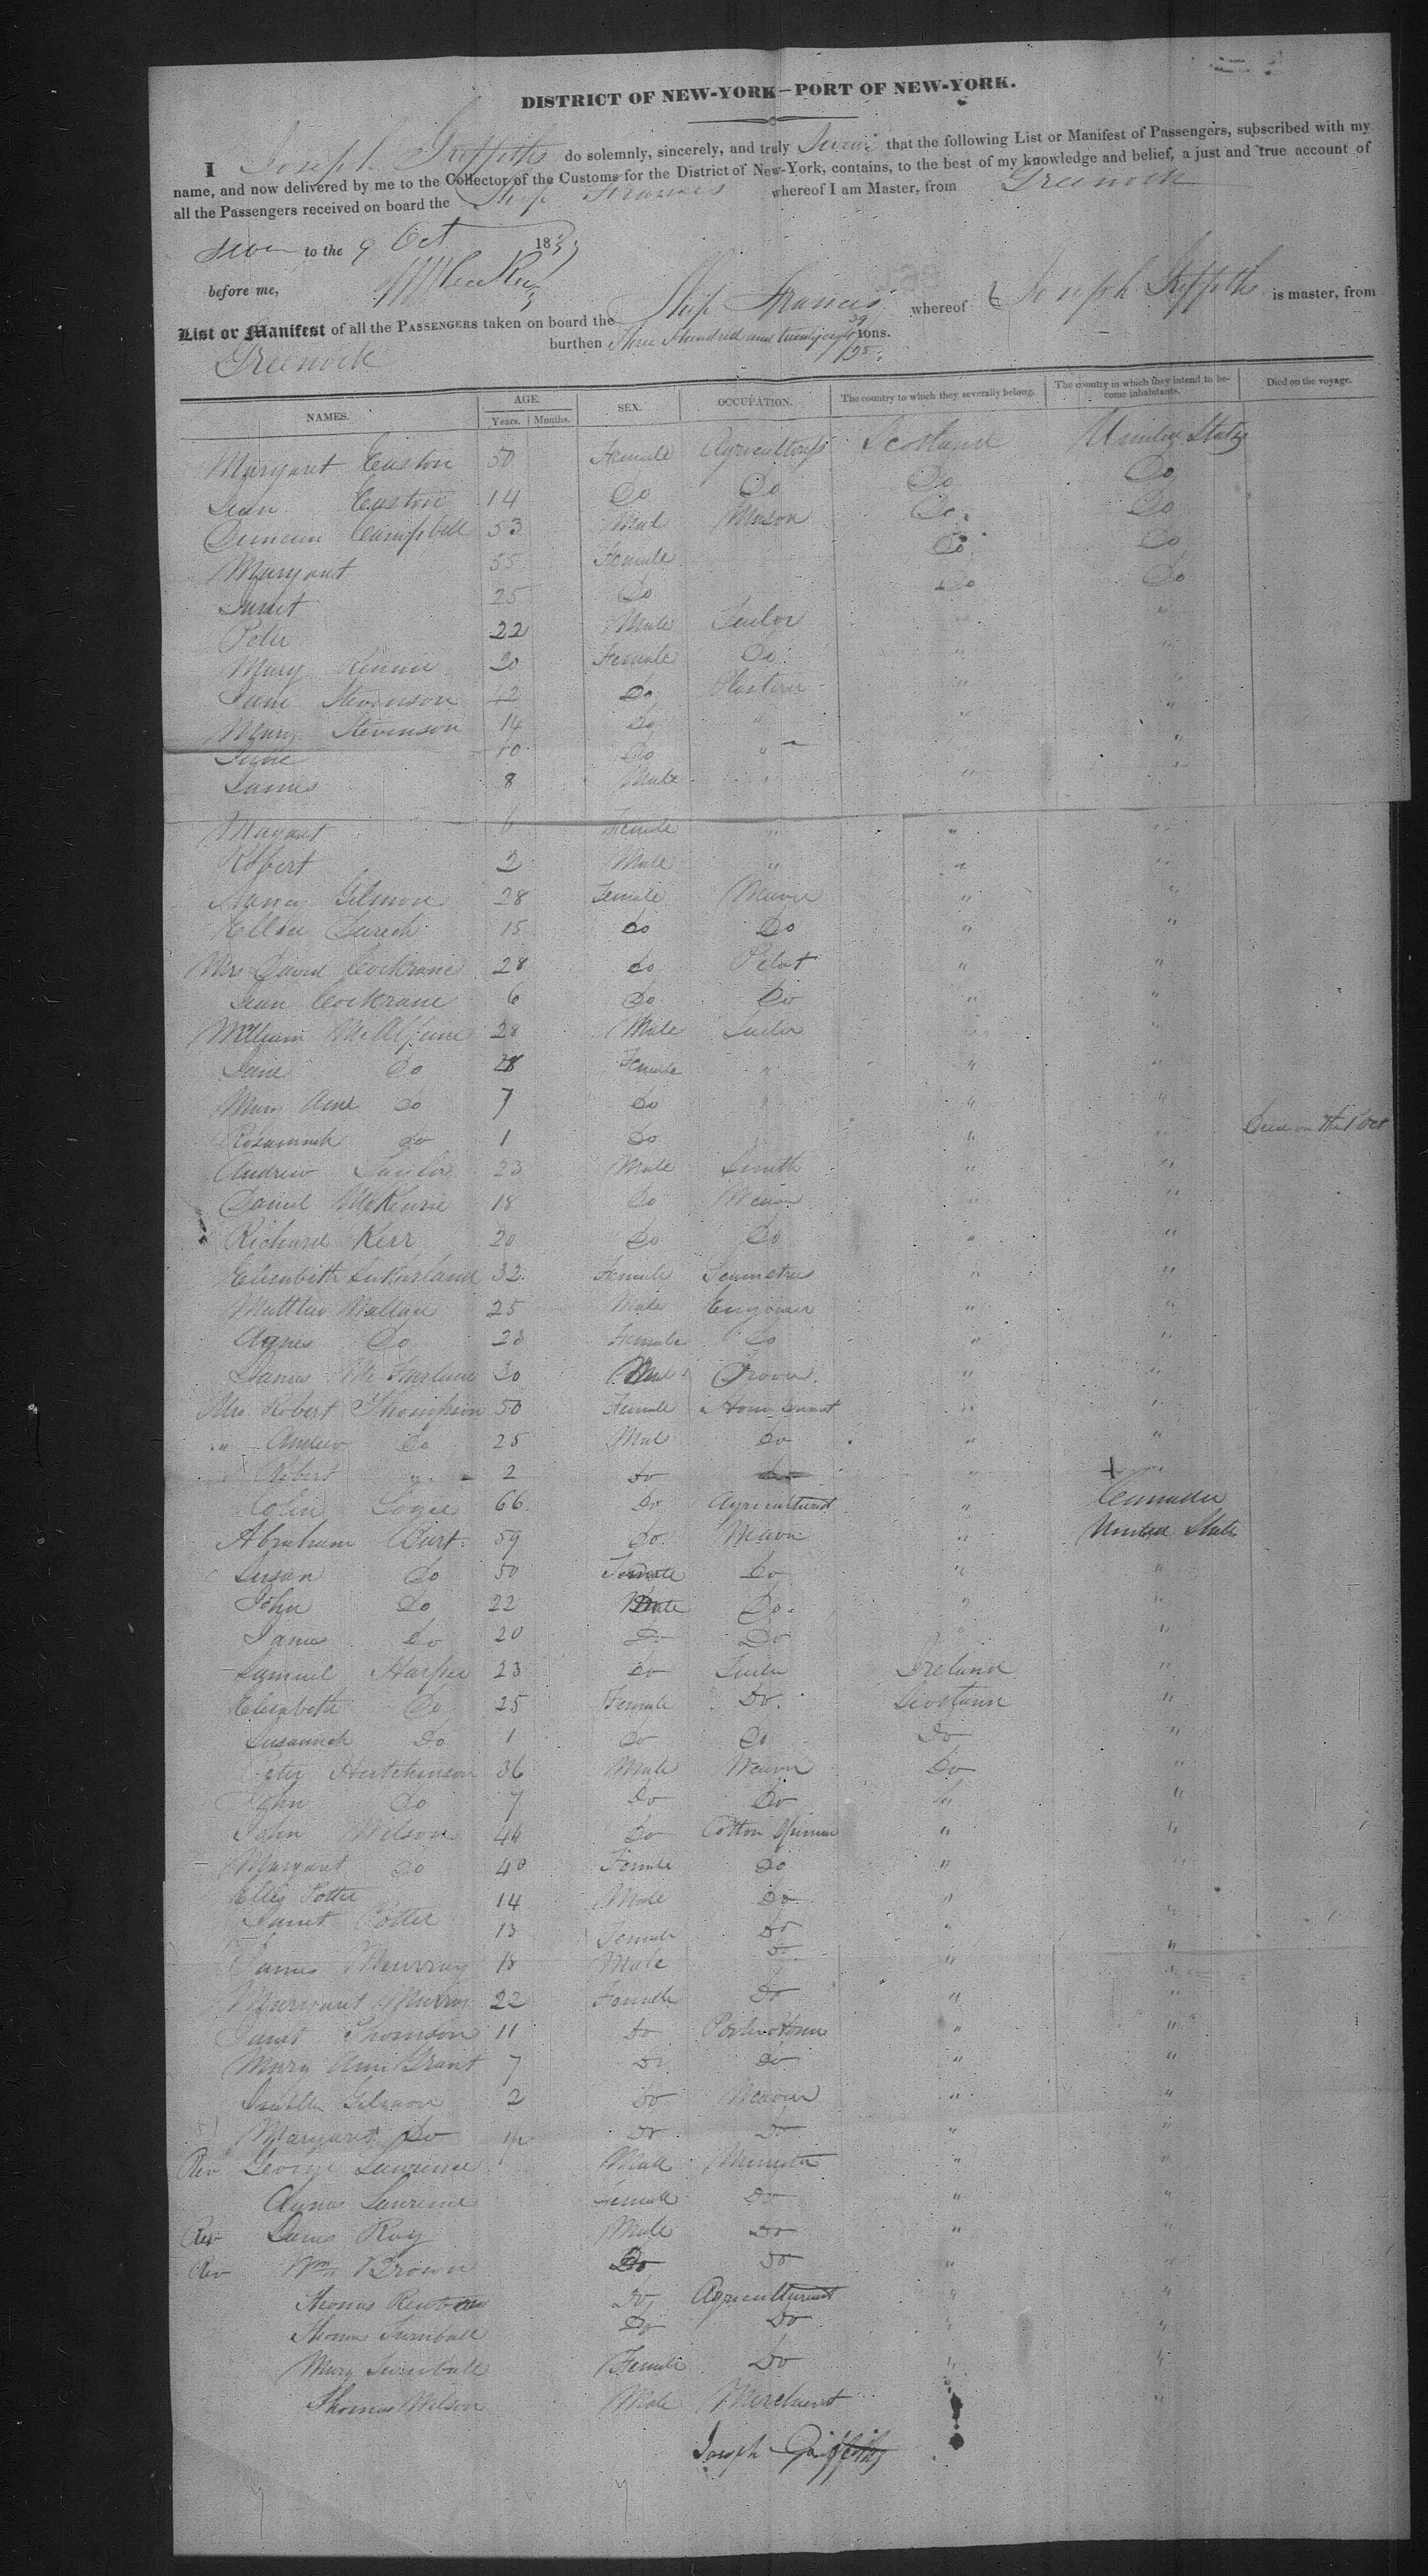 DISTRICT OF NEW-YORK—PORT OF NEW-YORK.
I Joseph Griffiths do solemnly, sincerely, and truly Swear that the following List or Manifest of Passengers, subscribed with my
name, and now delivered by me to the Collector of the Customs for the District of New-York, contains, to the best of my knowledge and belief, a just and true account of
all the Passengers received on board the Ship Francis whereof I am Master, from Greenock
Sworn to the 9 Oct 1833
before me,
List or Manifest of all the PASSENGERS taken on board the Ship Francis whereof Joseph Griffiths is master, from
Greenock burthen Three Hundred and twenty eight 39/95 tons.
NAMES. AGE. Years. Months. SEX. OCCUPATION. The country to which they severally belong. The country in which they intend to become inhabitants. Died on the voyage.
Margaret Easton 50 Female Agricultourist Scotland United States
Jean Easton 14 Do Do Do Do
Duncan Campbell 53 Male Mason Do Do
Margaret 55 Female Do Do
Janet 25 Do Do Do
Peter 22 Male Tailor " "
Mary Rennie 20 Female Do " "
Jane Stevenson 42 Do Plasterer " "
Mary Stevenson 14 Do " " "
Jane 10 Do " "
James 8 Male " " "
Margaret 6 Female " " "
Robert 2 Male " " "
Nancy Gilmore 28 Female Weaver " "
Ellen 15 do Do " "
Mrs David Cochrane 28 do Pilot " "
Jean Cochrane 6 Do Do " "
William McAlpine 28 Male Tailor "
Jane Do 28 Female " " "
Mary Ann Do 7 Do " " "
Rosannah do 1 Do " " Died on the 1 Oct
Andrew Taylor 23 Male Smith " "
Daniel McKenzie 18 Do Weaver " "
Richard Kerr 20 Do Do " "
Elizabeth Sutherland 32 Female Seamstres " "
Matthew Wallace 25 Male Engineer " "
Agnes Do 23 Female Do " "
James McFarlane 30 Male Grocer " "
Mrs Robert Thompson 50 Female House Servant " "
" Andrew Do 25 Male do " "
" Robert " 2 do do " "
Colin Logie 66 Do Agriculturist " Canada
Abraham Burt 59 do Weaver " United State
Susan Do 50 Female Do " "
John Do 22 Male Do " "
James Do 20 Do Do " "
Samuel Harper 23 do Tailor Ireland "
Elizabeth Do 25 Female Do Scotland "
Susannah Do 1 Do Do Do "
Peter Hutchinson 36 Male Weaver Do "
John Do 7 Do Do " "
John Wilson 46 Do Cotton Spinner " "
Margaret Do 40 Female Do " "
Ellis Potter 14 Male Do "
Janet Potter 13 Female Do " "
James Murray 18 Male Do " "
Margaret Murray 22 Female Do " "
Janet Thomson 11 Do " "
Mary Ann Grant 7 Do Do " "
Isabella Gilmore 2 Do Weaver " "
Margaret Do 1/2 Do Do " "
Rev George Lawrence Male Minister " "
Agnes Lawrence Female Do " "
Rev James Roy Male Do " "
Rev Wm Brown Do Do " "
Thomas Do Agriculturist " "
Thomas Turnbull Do Do " "
Mary Turnbull Female Do " "
Thomas Wilson Male Merchant "
Joseph Griffiths